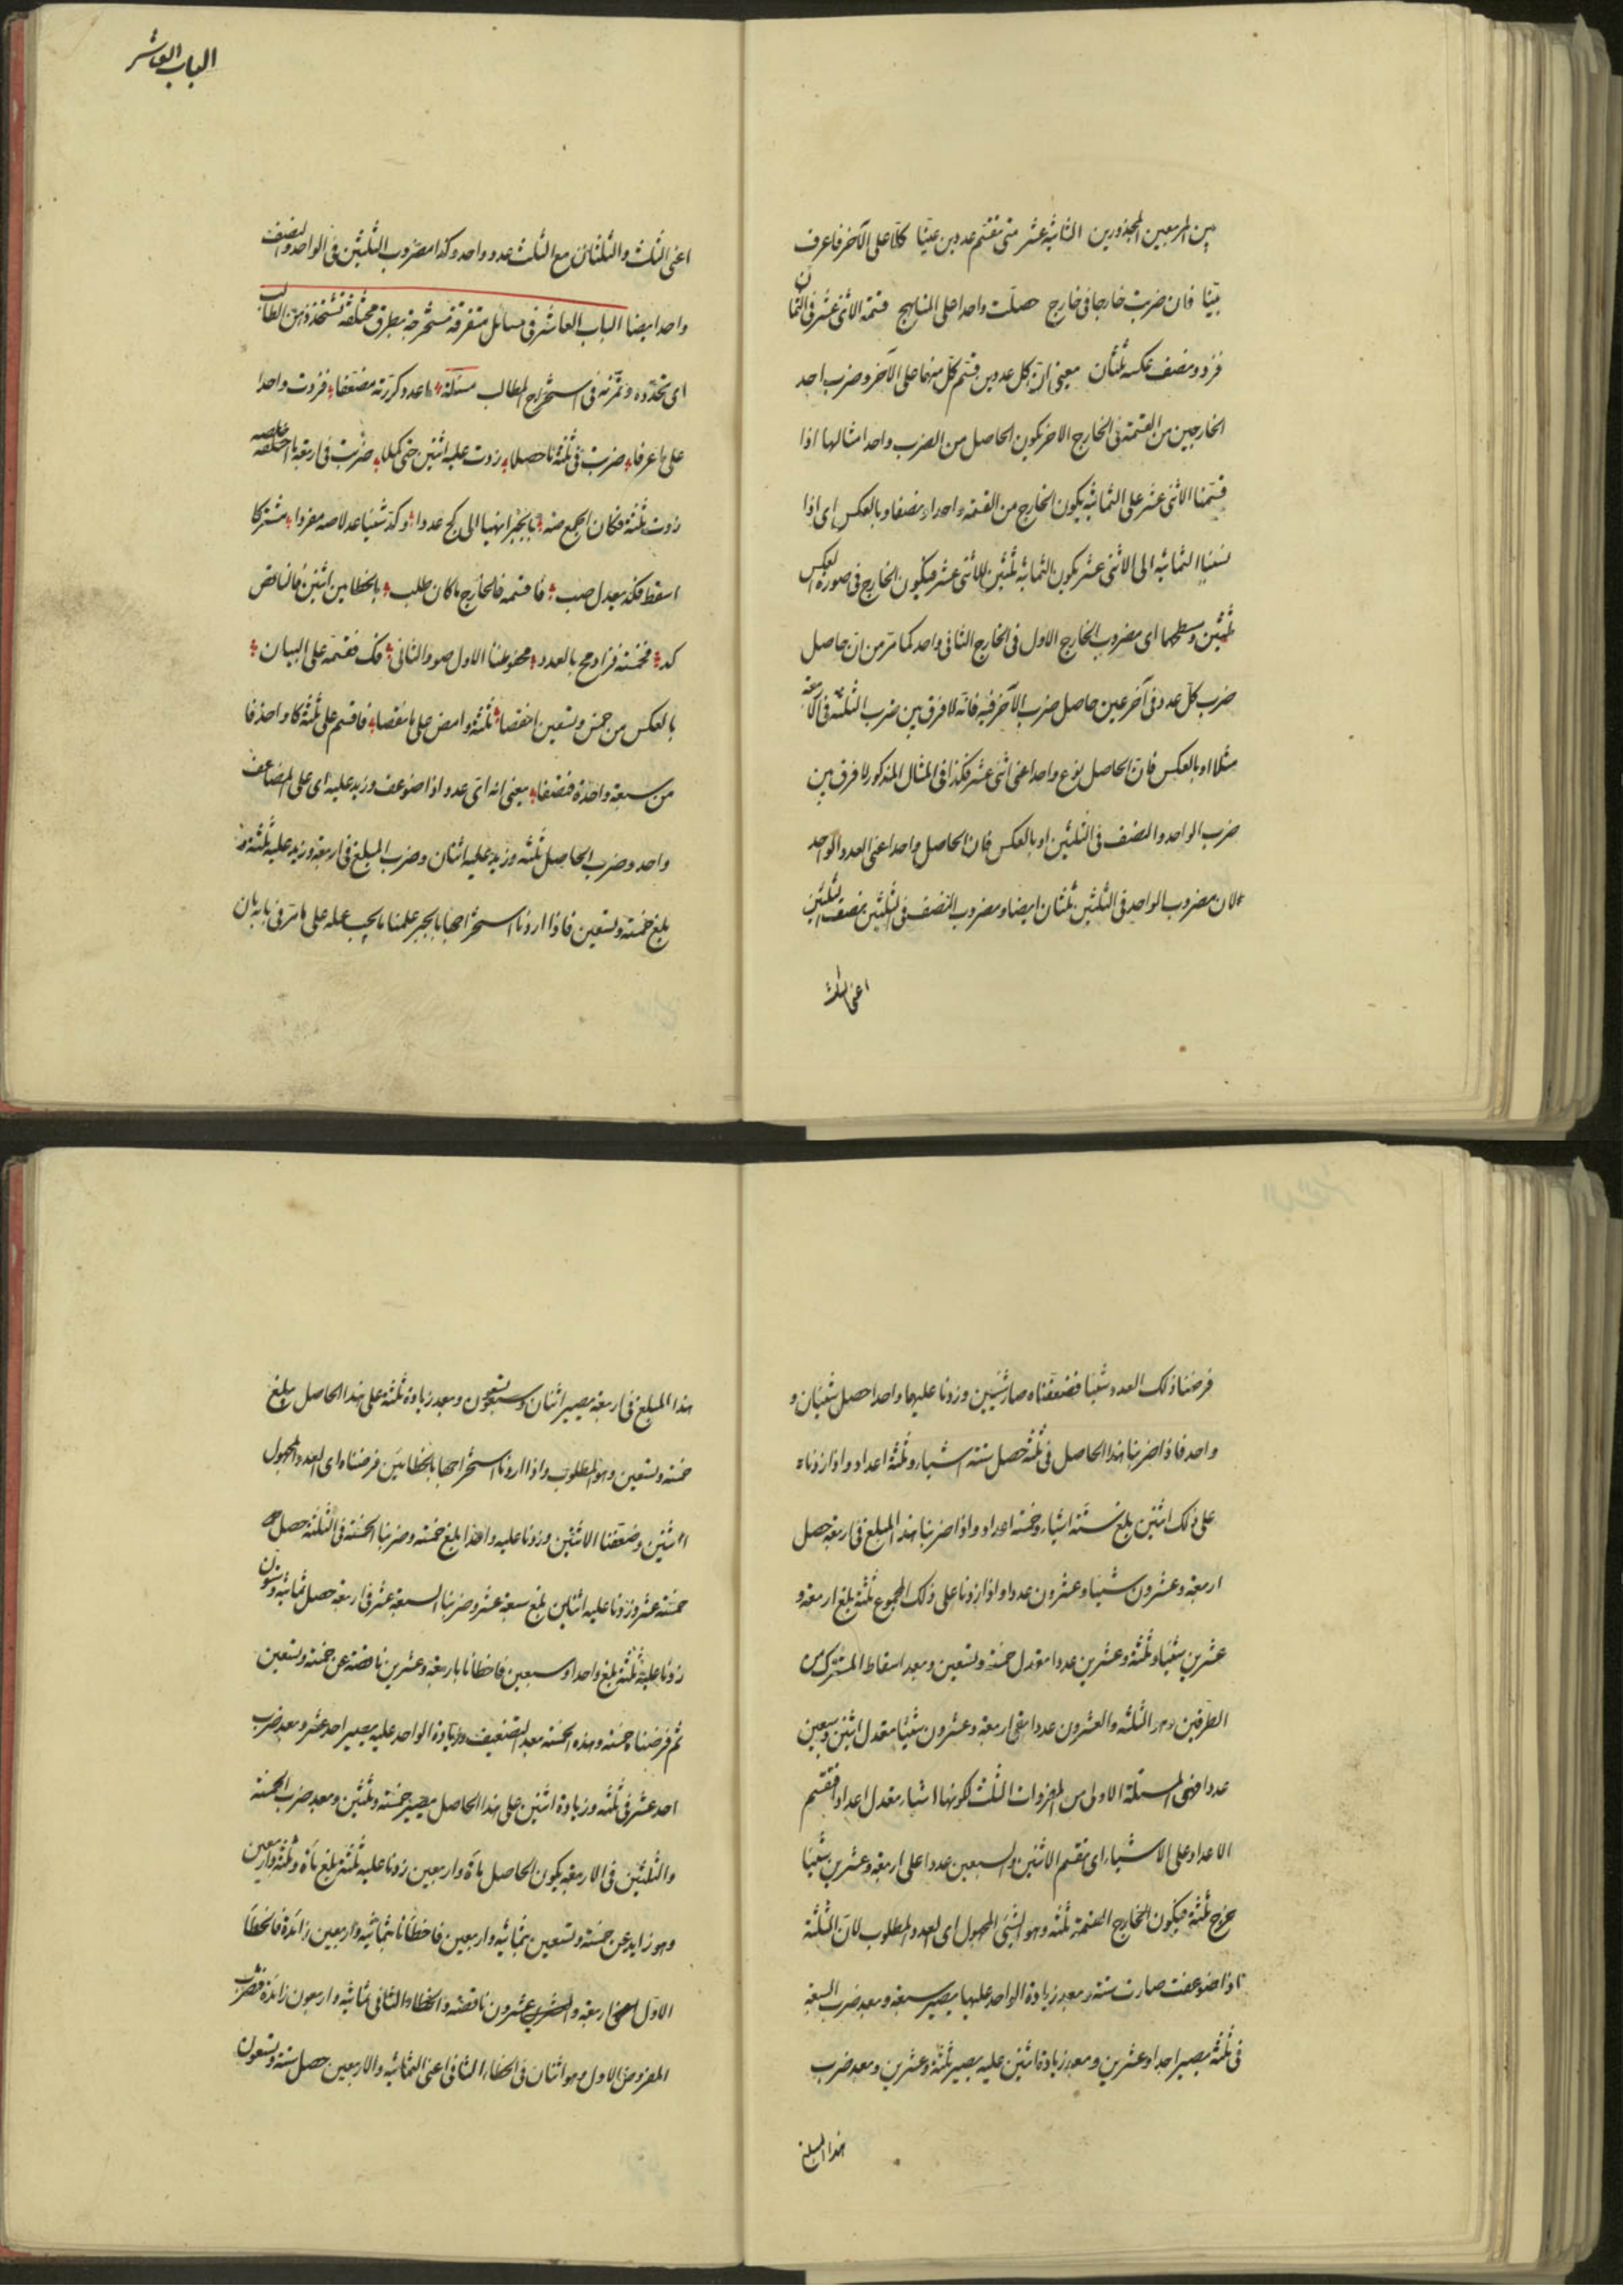 بين المربعين المجذورين الثانية عشر متى تقسم عددين عينا كلا على الآخر فاعرف
بينا فان ضربت خارجا في خارج حصلت واحدا على المناهج قسمة الاثنى عشر في الثمان
فرد ونصف عكسه ثلثان يعنى ان كل عددين قسم كل منهما على الآخر وضرب احد
الخارجين من القسمة في الخارج الاخر يكون الحاصل من الضرب واحدا مثالها اذا
قسمنا الاثنى عشر على الثمانية يكون الخارج من القسمة واحدا ونصفا وبالعكس اى اذا
نسبنا الثمانية الى الاثنى عشر يكون الثمانية ثلثين للاثنى عشر فيكون الخارج في صورة العكس
ثلثين وسطحهما اى مضروب الخارج الاول في الخارج الثانى واحد كما مر من ان حاصل
ضرب كل عدد في آخر عين حاصل ضرب الآخر فيه فانه لا فرق بين ضرب الثلثة في الاربعة
مثلا او بالعكس فان الحاصل نوع واحد اعنى اثنى عشر فكذا في المثال المذكور لا فرق بين
ضرب الواحد والنصف في الثلثين او بالعكس فان الحاصل واحد اعنى العدد الواحد
لان مضروب الواحد في الثلثين ثلثان ايضا ومضروب النصف في الثلثين نصف الثلثين
اعنى الثلث
الباب العاشر
اعنى الثلث والثلثان مع الثلث عدد واحد وكذا مضروب الثلثين في الواحد والنصف
واحد ايضا الباب العاشر في مسائل متفرقة مستخرجة بطرق مختلفة تشحذ ذهن الطالب
اى تحدده وتمرنه في استخراج المطالب مسئلة ما عدد كررته مضعفا فزدت واحدا
على ما عرفا ضربت في ثلثة ما حصلا زدت عليه اثنين حتى كملا ضربت في اربعة ما خلصه
زدت ثلثة فكان الجمع صه بالجبر انهيا الى كج عددا وكد شيئا عدلا صه مفردا مشتركا
اسقط فكد يعدل صب فاقسمه فالخارج ما كان طلب بالخطاءين اثنين فالناقص
كد فخمسة فزاد مح بالعدد محفوظنا الاول صو والثانى قك فقسمه على البيان
بالعكس من خمس وتسعين انقصا ثلثة وامض على ما نقصا فاقسم على ثلثة كا واحذفا
من سبعة واحدة فنصفا يعنى انه اى عدد اذا ضوعف وزيد عليه اى على المضاعف
واحد وضرب الحاصل ثلثة وزيد عليه اثنان وضرب المبلغ في اربعة وزيد عليه ثلثة
بلغ خمسة وتسعين فاذا اردنا استخراجها بالجبر علمنا ما يجب عمله على ما مر في بابه بان
فرضنا ذلك العدد شيئا فضعفناه صار شيئين وزدنا عليهما واحدا حصل شيئان و
واحد فاذا ضربنا هذا الحاصل في ثلثة حصل ستة اشياء وثلثة اعداد واذا زدناه
على ذلك اثنين بلغ ستة اشياء وخمسة اعداد واذا ضربنا هذا المبلغ في اربعة حصل
اربعة وعشرون شيئا وعشرون عددا واذا زدنا على ذلك المجموع ثلثة بلغ اربعة و
عشرين شيئا وثلثة وعشرين عددا معدل خمسة وتسعين وبعد اسقاط المشترك من
الطرفين وهو الثلثة والعشرون عددا بقى اربعة وعشرون شيئا معدل اثنين وسبعين
عددا فهى المسئلة الاولى من المفردات الثلث لكونها اشياء معدل اعدادا فنقسم
الاعداد على الاشياء اى نقسم الاثنين والسبعين عددا على اربعة وعشرين شيئا
خرج ثلثة فيكون الخارج القسمة ثلثة وهو الشيئ المجهول اى العدد المطلوب لان الثلثة
اذا ضوعفت صارت ستة وبعد زيادة الواحد عليها يصير سبعة وبعد ضرب السبعة
في ثلثة يصير احدا وعشرين وبعد زيادة اثنين عليه يصير ثلثة وعشرين وبعد ضرب
هذا المبلغ
هذا المبلغ في اربعة يصير اثنان وتسعون وبعد زيادة ثلثة على هذا الحاصل يبلغ
خمسة وتسعين وهو المطلوب واذا اردنا استخراجها بالخطاءين فرضناه اى العدد المجهول
اثنين وضعفنا الاثنين وزدنا عليه واحدا بلغ خمسة وضربنا الخمسة في الثلثة حصل
خمسة عشر وزدنا عليه اثنين بلغ سبعة عشر وضربنا السبعة عشر في اربعة حصل ثمانية وستون
زدنا عليه ثلثة بلغ واحدا وسبعين فاخطأنا باربعة وعشرين ناقصة عن خمسة وتسعين
ثم فرضناه خمسة وهذه الخمسة بعد التضعيف وزيادة الواحد عليه يصير احد عشر وبعد ضرب
احد عشر في ثلثة وزيادة اثنين على هذا الحاصل يصير خمسة وثلثين وبعد ضرب الخمسة
والثلثين في الاربعة يكون الحاصل مائة واربعين زدنا عليه ثلثة بلغ مائة وثلثة واربعين
وهو زايد عن خمسة وتسعين بثمانية واربعين فاخطأنا بثمانية واربعين زائدة فالخطأ
الاول اعنى اربعة والعشرين عشرون ناقصة والخطاء الثانى ثمانية واربعون زائدة فنضرب
المفروض الاول وهو اثنان في الخطاء الثانى اعنى الثمانية والاربعين حصل ستة وتسعون